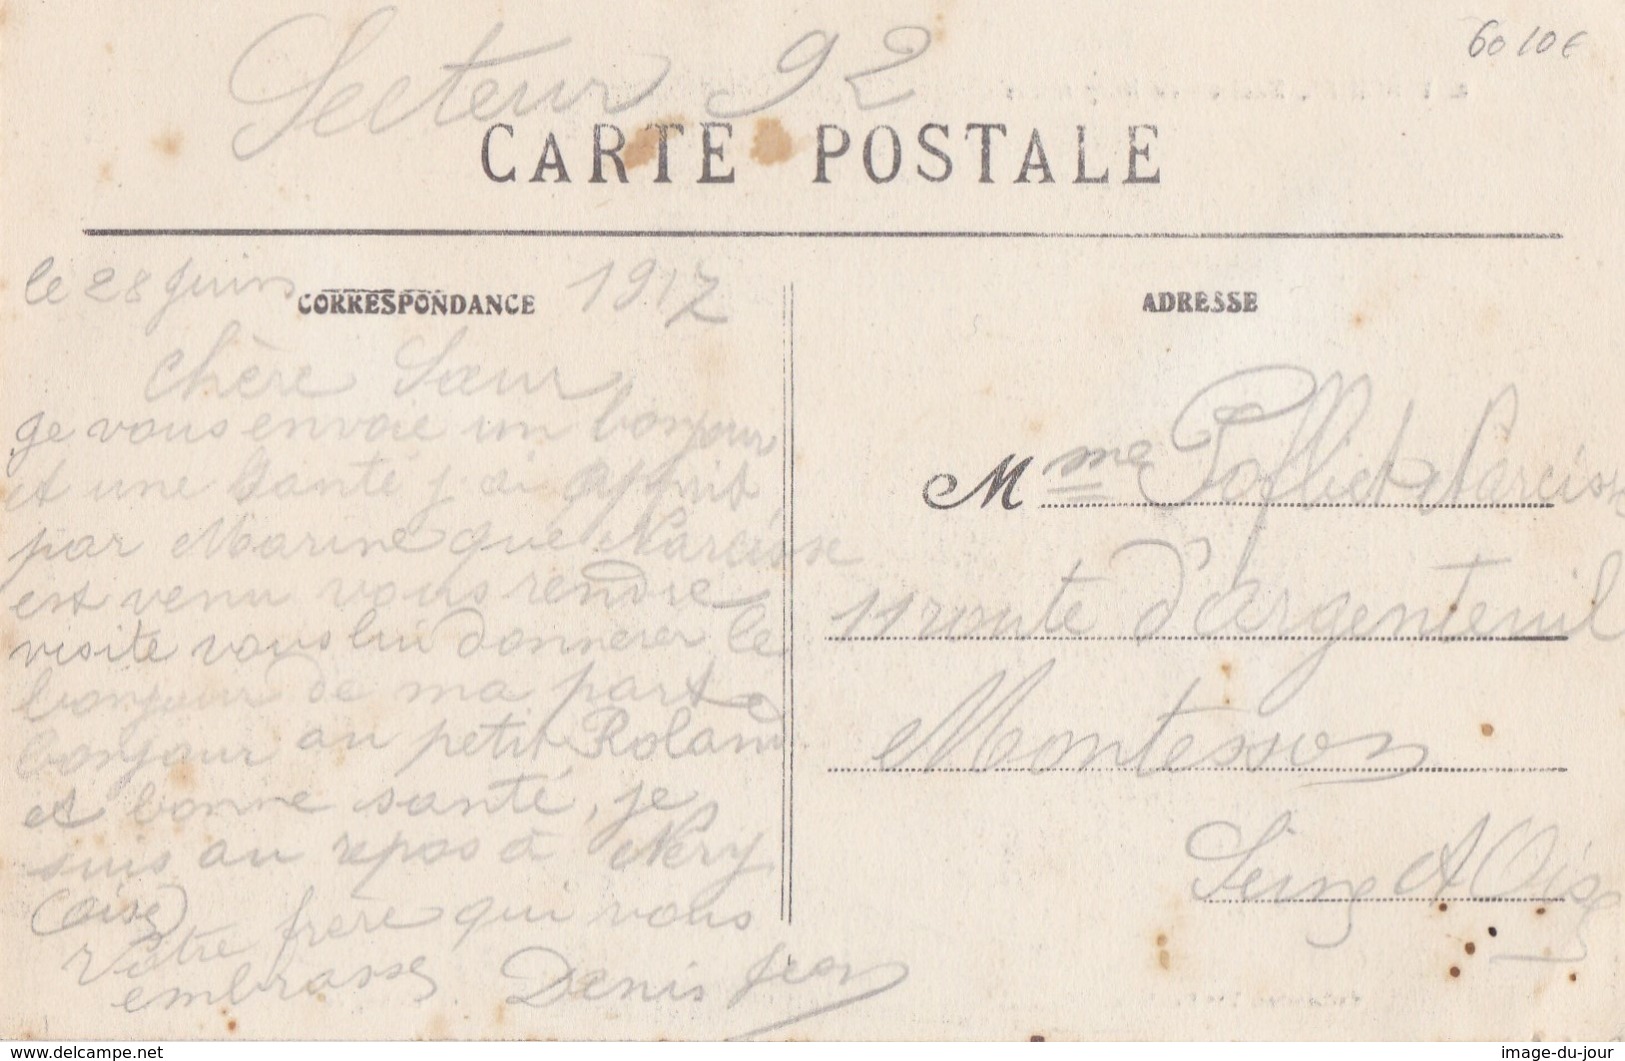 60 10€
Secteur 92
CARTE POSTALE
le 28 juin 1917
CORRESPONDANCE
chère Sœur
je vous envoie un bonjour
et une santé j'ai apprit
par Marine que Narcisse
est venu vous rendre
visite vous lui donnerer le
bonjour de ma part
bonjour au petit Roland
et bonne santé, je
suis au repos à Nery
(oise)
Votre frère qui vous
embrasse Denis Jean
ADRESSE
Mme Polliet Narcisse
11 route d'argenteuil
Montesson
Seine et Oise
www.delcampe.net
image-du-jour